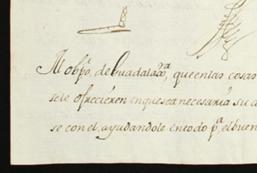 Al obpo. de Guadalaxa. que en las cosas
se le ofrecieren en que sea necesario su a
se con el, ayudandole en todo pa. el buen